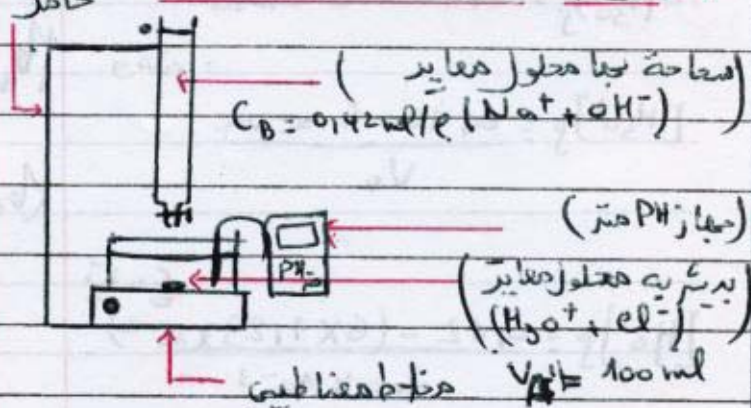 حامل
(سحاحة بها محلول معاير)
C_B = 0,42 mol/l (Na⁺ + OH⁻)
(جهاز PH متر)
PH-
(بيشر به محلول معاير
(H₃O⁺ + Cl⁻))
V = 100 ml
مخلاط مغناطيسي